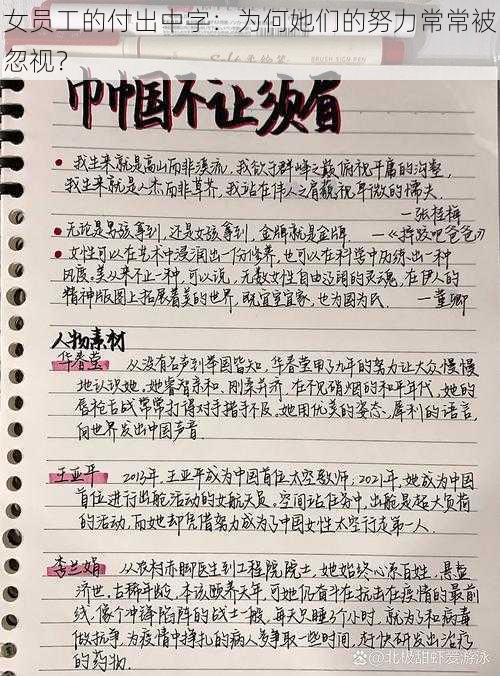 女员工的付出中字：为何她们的努力常常被
忽视？
巾帼不让须眉
我生来就是高山而非溪流，我欲于群峰之巅俯视平庸的沟壑，
我生来就是人杰而非草芥，我站在伟人之肩藐视卑微的懦夫。
—张桂梅
无论是男孩拿到，还是女孩拿到，金牌就是金牌 —《摔跤吧爸爸》
女性可以在艺术中浸润出一份修养，也可以在科学中历练出一种
风度。美从来不止一种，可以说，无数女性自由辽阔的灵魂，在伊人的
精神版图上拓展着美的世界，既宜室宜家，也为国为民。 —董卿
人物素材
华春莹 从没有名声到举国皆知，华春莹用了九年的努力让大众慢慢
地认识她。她睿智亲和，刚柔并济，在不见硝烟的和平年代，她的
唇枪舌战常常打得对手措手不及。她用优美的姿态，犀利的语言，
向世界发出中国声音.
王亚平 2013年，王亚平成为中国首位太空教师，2021年，她成为中国
首位进行出舱活动的女航天员。空间站任务中，出舱是超大负荷
的活动，而她却凭借努力成为了中国女性太空行走第一人.
李兰娟 从农村赤脚医生到工程院院士，她始终心系百姓，悬壶
济世，古稀年龄，本该颐养天年，可她仍奋斗在抗击在疫情的最前
线，像个冲锋陷阵的战士一般，每天只睡3个小时，就为了和病毒
做抗争，为疫情中挣扎的病人多争取一些时间，赶快研发出治疗
的药物.
@北极甜虾爱游泳